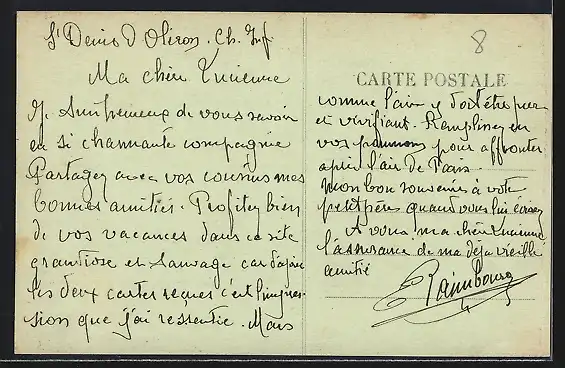 St Denis d'Oléron. Ch. Inf
8
Ma chère Lucienne
Je suis heureux de vous savoir
en si charmante compagnie
Partagez avec vos cousins mes
bonnes amitiés. Profitez bien
de vos vacances dans ce site
grandiose et sauvage car d'après
les deux cartes reçues c'est l'impres-
sion que j'ai ressentie. Mais
CARTE POSTALE
comme l'air y doit être pur
et vivifiant. Remplissez en
vos poumons pour affronter
après l'air de Paris.
Mon bon souvenir à votre
petit père quand vous lui écrirez
A vous ma chère Lucienne
l'assurance de ma déjà vieille
amitié
Raimbourg